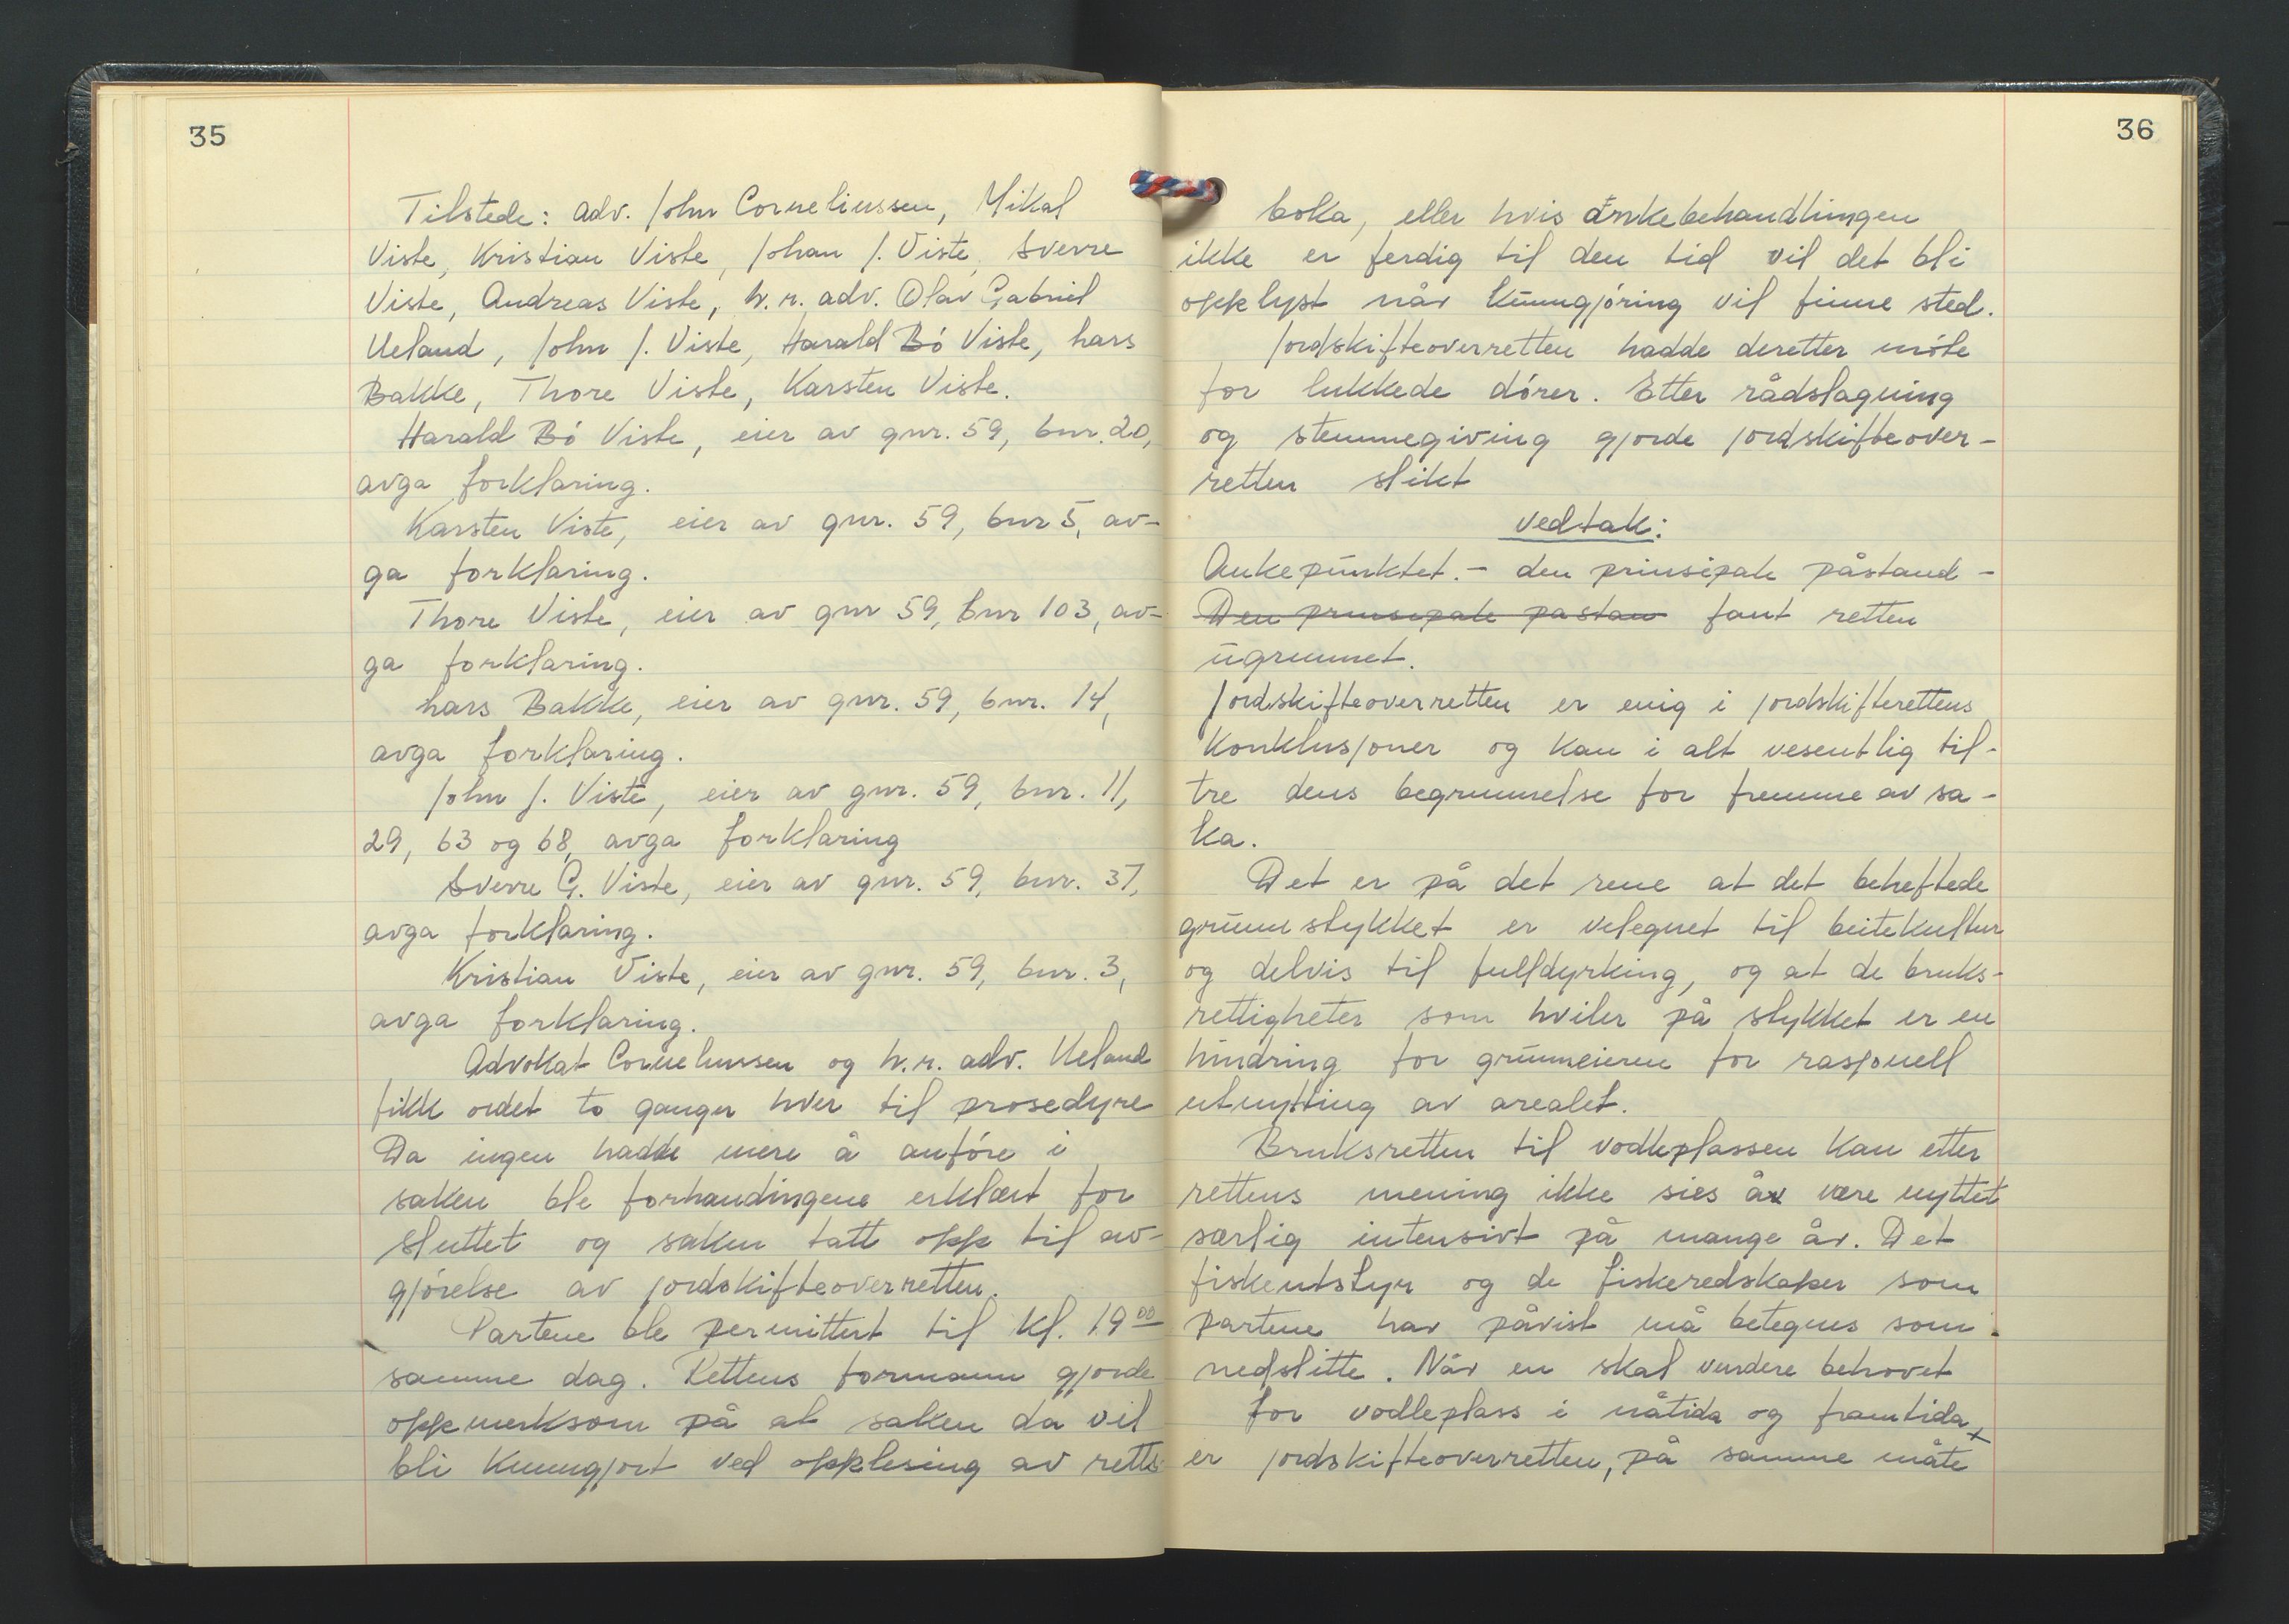 35
Tilstede: adv. John Corneliussen, Mikal
Viste, Kristian Viste, Johan J. Viste, Sverre
Viste, Andreas Viste, h.r. adv. Olav Gabriel
Ueland, John J. Viste, Harald Bó Viste, Lars
Bakke, Thore Viste, Karsten Viste.
Harald Bó Viste, eier av gnr. 59, bnr. 20,
avga forklaring.
Karsten Viste, eier av gnr. 59, bnr 5, av-
ga forklaring.
Thore Viste, eier av gnr 59, bnr 103, av-
ga forklaring.
Lars Bakke, eier av gnr. 59, bnr. 14,
avga forklaring.
John J. Viste, eier av gnr. 59, bnr. 11,
29, 63 og 68, avga forklaring
Sverre G. Viste, eier av gnr. 59, bnr. 37,
avga forklaring.
Kristian Viste, eier av gnr. 59, bnr. 3,
avga forklaring.
Advokat Corneliussen og h.r. adv. Ueland
fikk ordet to ganger hver til prosedyre
Da ingen hadde mere å anføre i
saken ble forhandingene erklært for
sluttet og saken tatt opp til av-
gjørelse av jordskifteoverretten.
Partene ble permittert til kl. 19 00
samme dag. Rettens formann gjorde
oppmerksom på at saken da vil
bli kunngjort ved opplesing av retts-
36
boka, eller hvis ankebehandlingen
ikke er ferdig til den tid vil det bli
opplyst når kunngjøring vil finne sted.
Jordskifteoverretten hadde deretter møte
for lukkede dører. Etter rådslagning
og stemmegiving gjorde jordskifteover-
retten slikt
vedtak:
Ankepunktet. - den prinsipale påstand -
Den prinsipale pastan fant retten
ugrunnet.
Jordskifteoverretten er enig i jordskifterettens
konklusjoner og kan i alt vesentlig til-
tre dens begrunnelse for fremme av sa-
ka.
Det er på det rene at det beheftede
grunnstykket er velegnet til beitekultur
og delvis til fulldyrking, og at de bruks-
rettigheter som hviler på stykket er en
hindring for grunneieren for rasjonell
utnytting av arealet.
Bruksretten til vodleplassen kan etter
rettens mening ikke sies å være nyttet
særlig intensivt på mange år. Det
fiskeutstyr og de fiskeredskaper som
partene har påvist må betegnes som
nedslitte. Når en skal vurdere behovet
for vodleplass i nåtida og framtida
er jordskifteoverretten, på samme måte